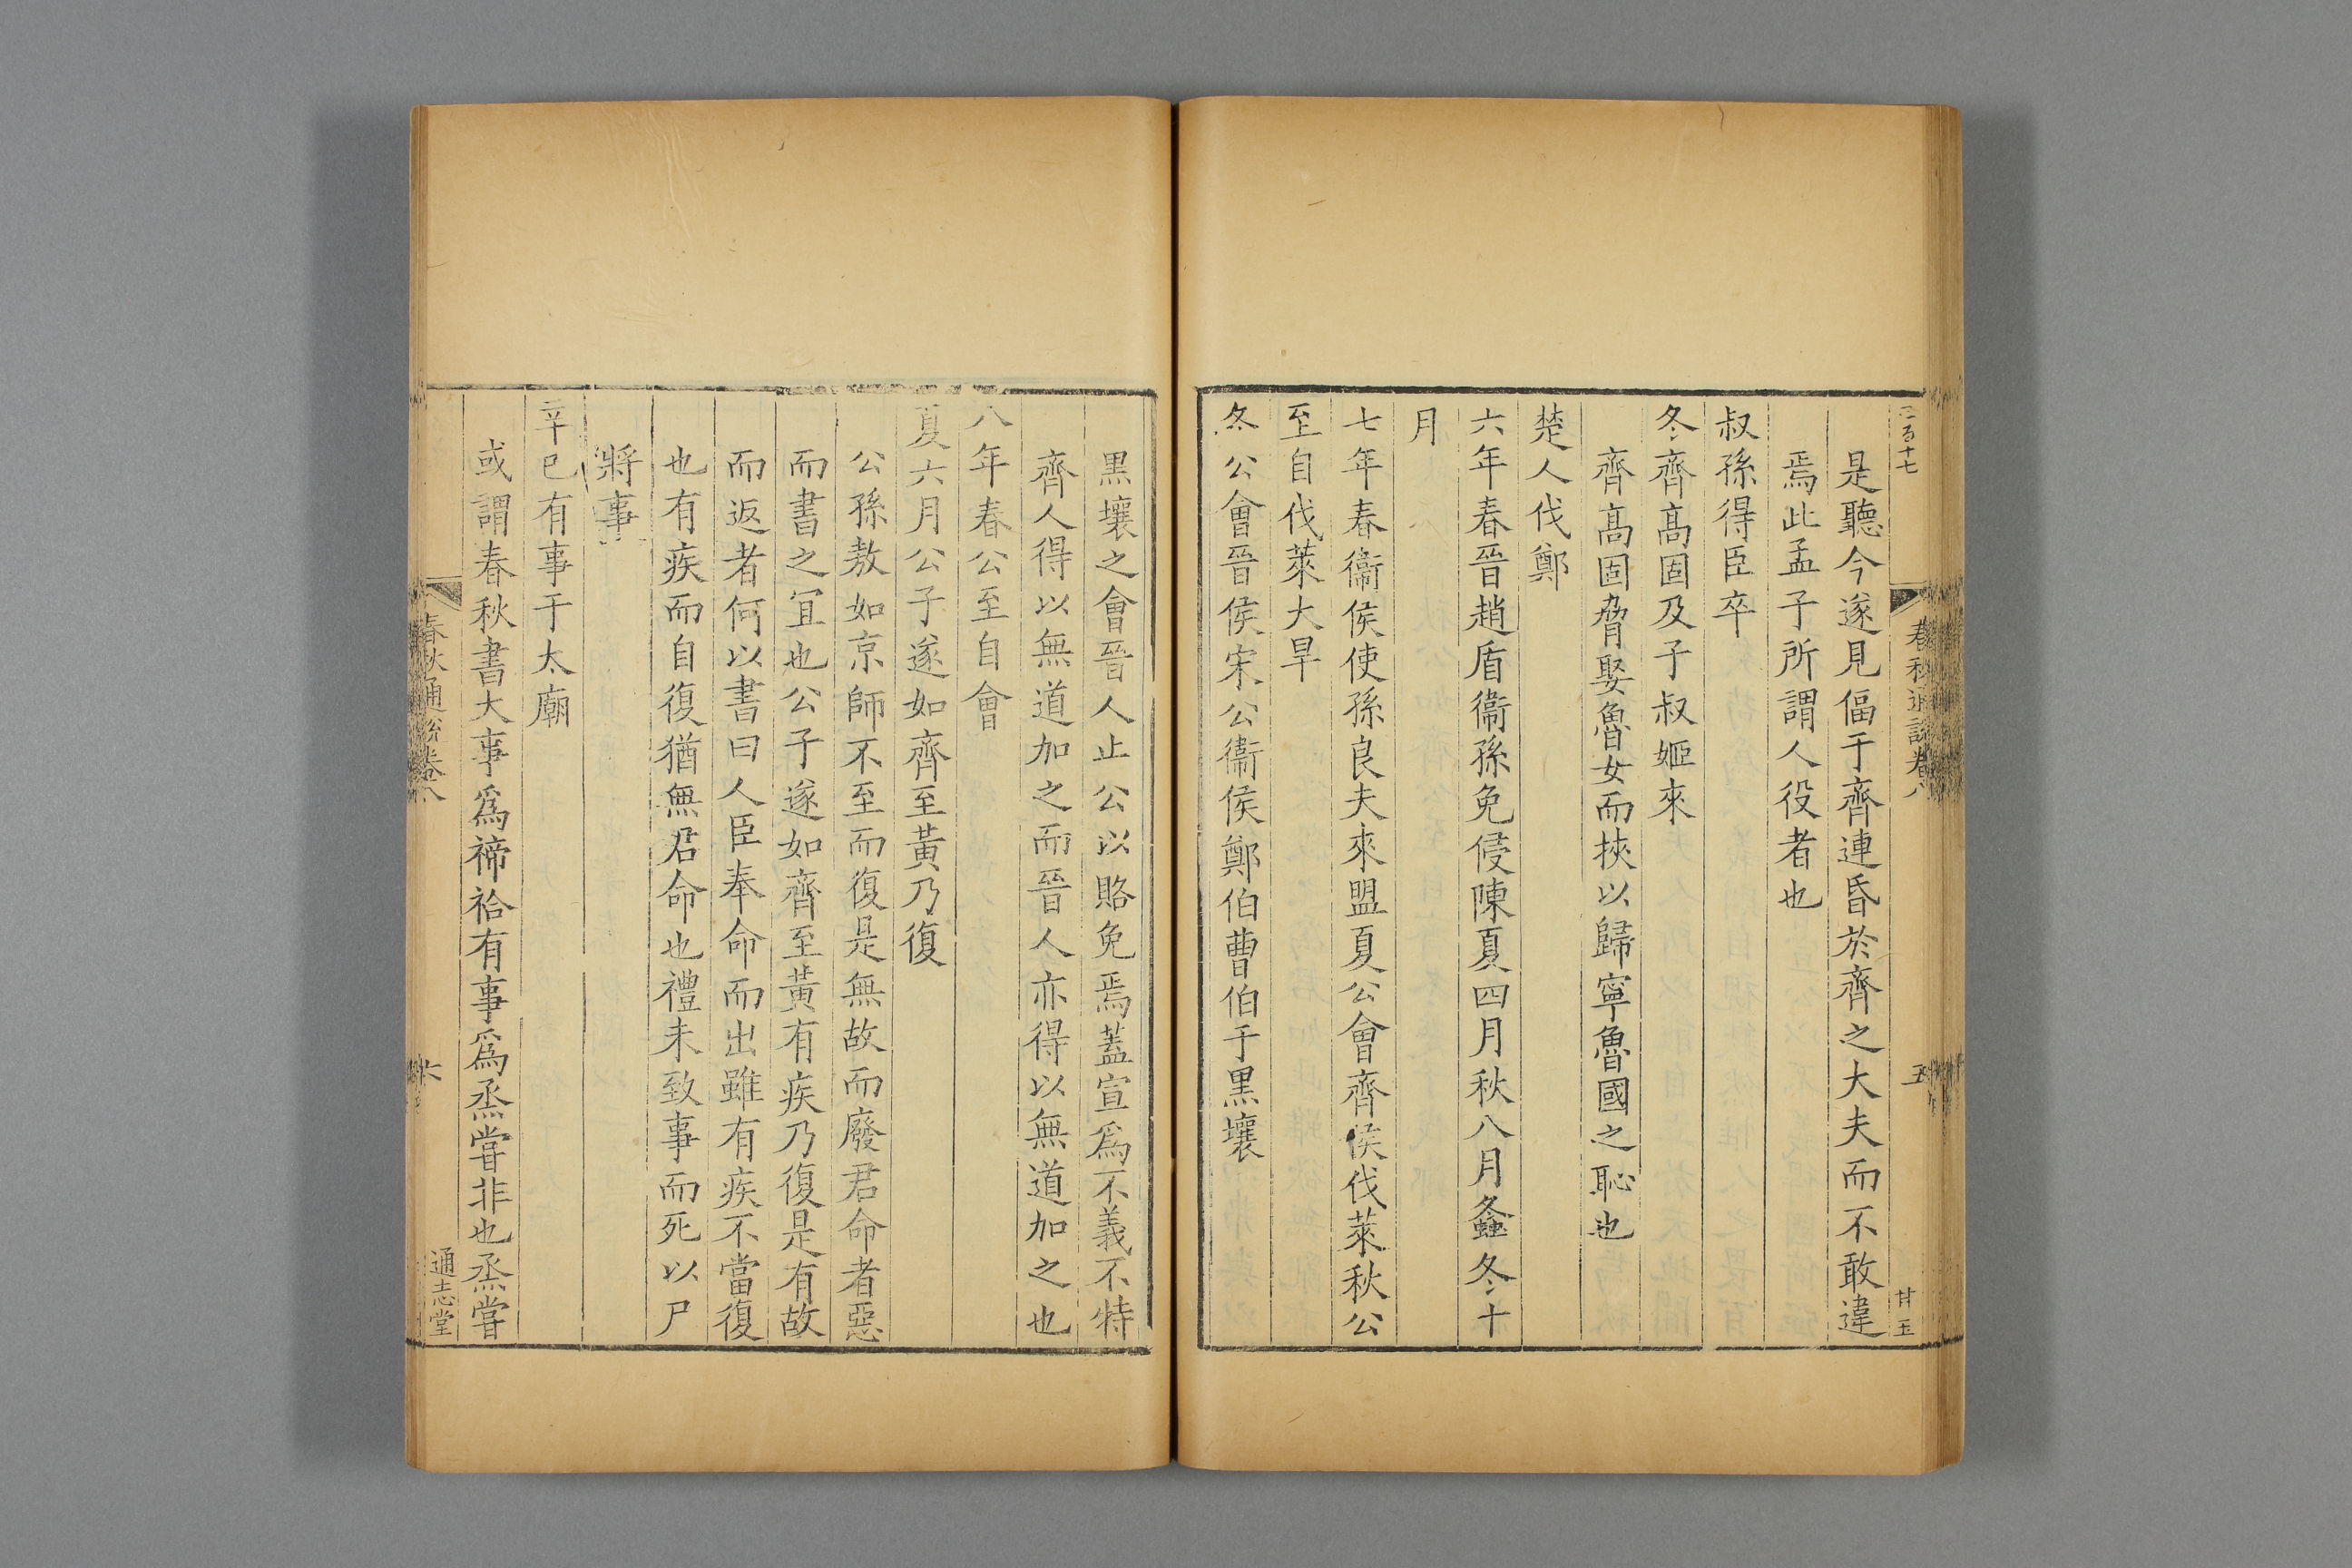 是聽今遂見偪于齊連昏於齊之大夫而不敢違
焉此孟子所謂人役者也
叔孫得臣卒
冬齊髙固及子叔姬來
齊髙固脅娶魯女而挾以歸寧魯國之恥也
楚人伐鄭
六年春晉趙盾衞孫免侵陳夏四月秋八月螽冬十
月
七年春衞侯使孫良夫來盟夏公會齊侯伐萊秋公
至自伐萊大旱
冬公會晉侯宋公衞侯鄭伯曹伯于黒壤
黒壤之會晉人止公以賂免焉蓋宣爲不義不特
齊人得以無道加之而晉人亦得以無道加之也
八年春公至自會
夏六月公子遂如齊至黃乃復
公孫敖如京師不至而復是無故而廢君命者惡
而書之冝也公子遂如齊至黃有疾乃復是有故
而返者何以書曰人臣奉命而出雖有疾不當復
也有疾而自復猶無君命也禮未致事而死以尸
將事
辛巳有事于太廟
或謂春秋書大事爲禘祫有事爲烝嘗非也烝嘗
春秋通說卷八
五
甘玉
六
通志堂